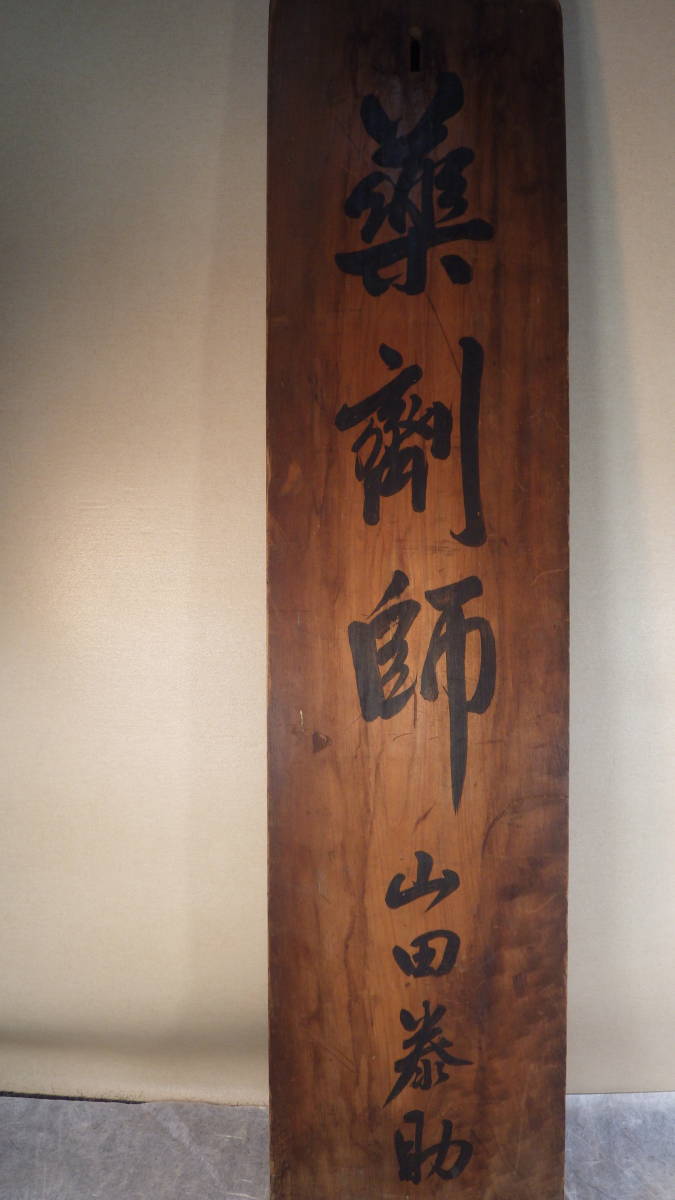 藥劑師 山田泰助